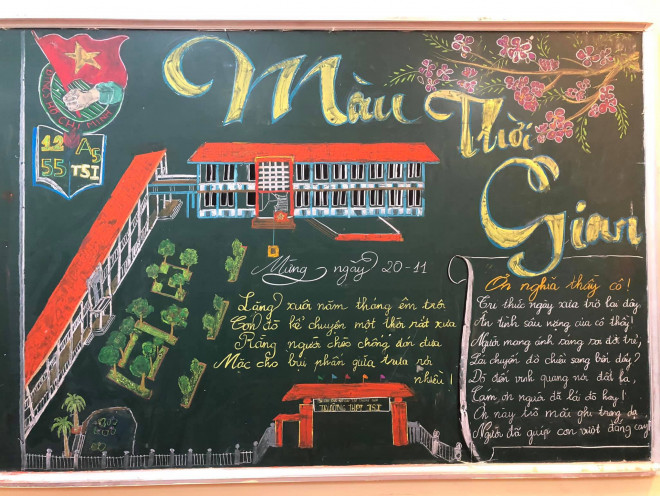 ĐOÀN TNCS HỒ CHÍ MINH
12 A5
55 TSI
Màu
Thời
Gian
Mừng ngày 20-11
Lặng xuôi năm tháng êm trôi
Con đò kể chuyện một thời rất xưa
Rằng người chèo chống đón đưa
Mặc cho bụi phấn giữa trưa rơi
nhiều!
Ơn nghĩa thầy cô!
Tri thức ngày xưa trở lại đây
Ân tình sâu nặng của cô thầy!
Người mang ánh sáng soi đời trẻ,
Lái chuyến đò chiều sang bến đầy?
Đò đến vinh quang nơi đất lạ,
Cảm ơn người đã lái đò hay!
Ơn này trò mãi ghi trong dạ
Người đã giúp con vượt đắng cay!
TRƯỜNG THPT TSI